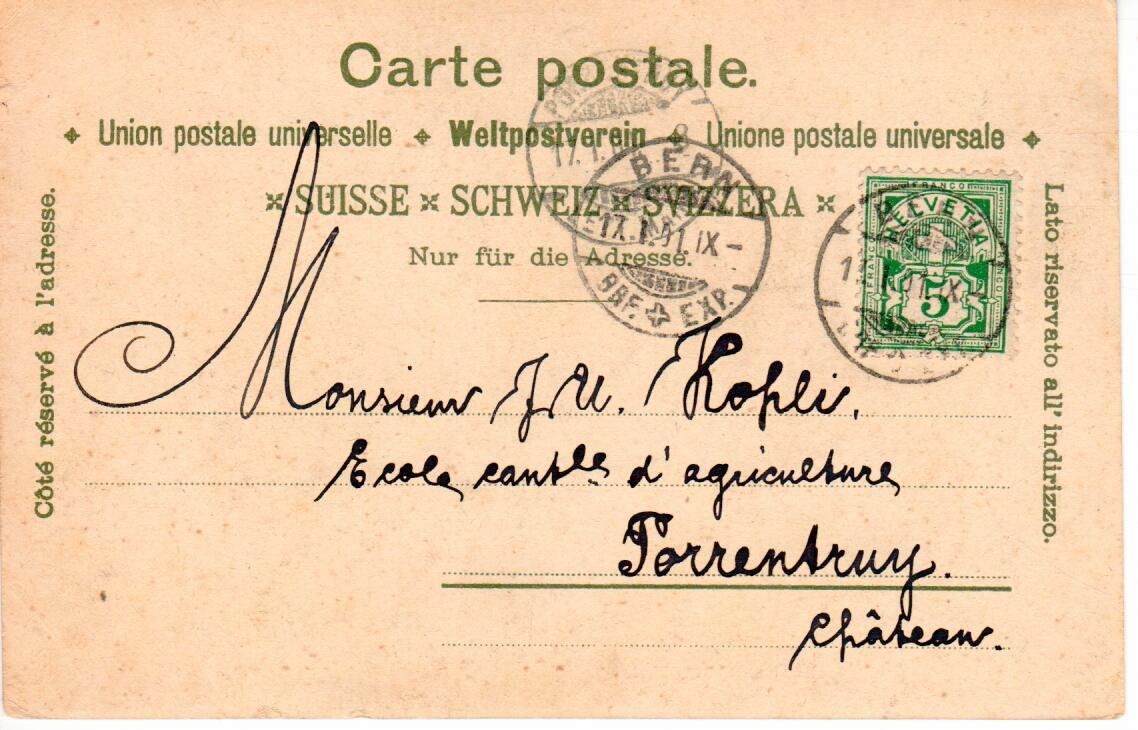 Carte postale.
Union postale universelle Weltpostverein Unione postale universale
SUISSE SCHWEIZ SVIZZERA
Nur für die Adresse.
Côté réservé à l'adresse.
Lato riservato all' indirizzo.
BERN
17.I.01.IX-
BRF. EXP.
17.I.
FRANCO
HELVETIA
FRANCO
FRANCO
5
Monsieur J. U. Hopli,
Ecole cantle d'agriculture
Porrentruy.
Château.